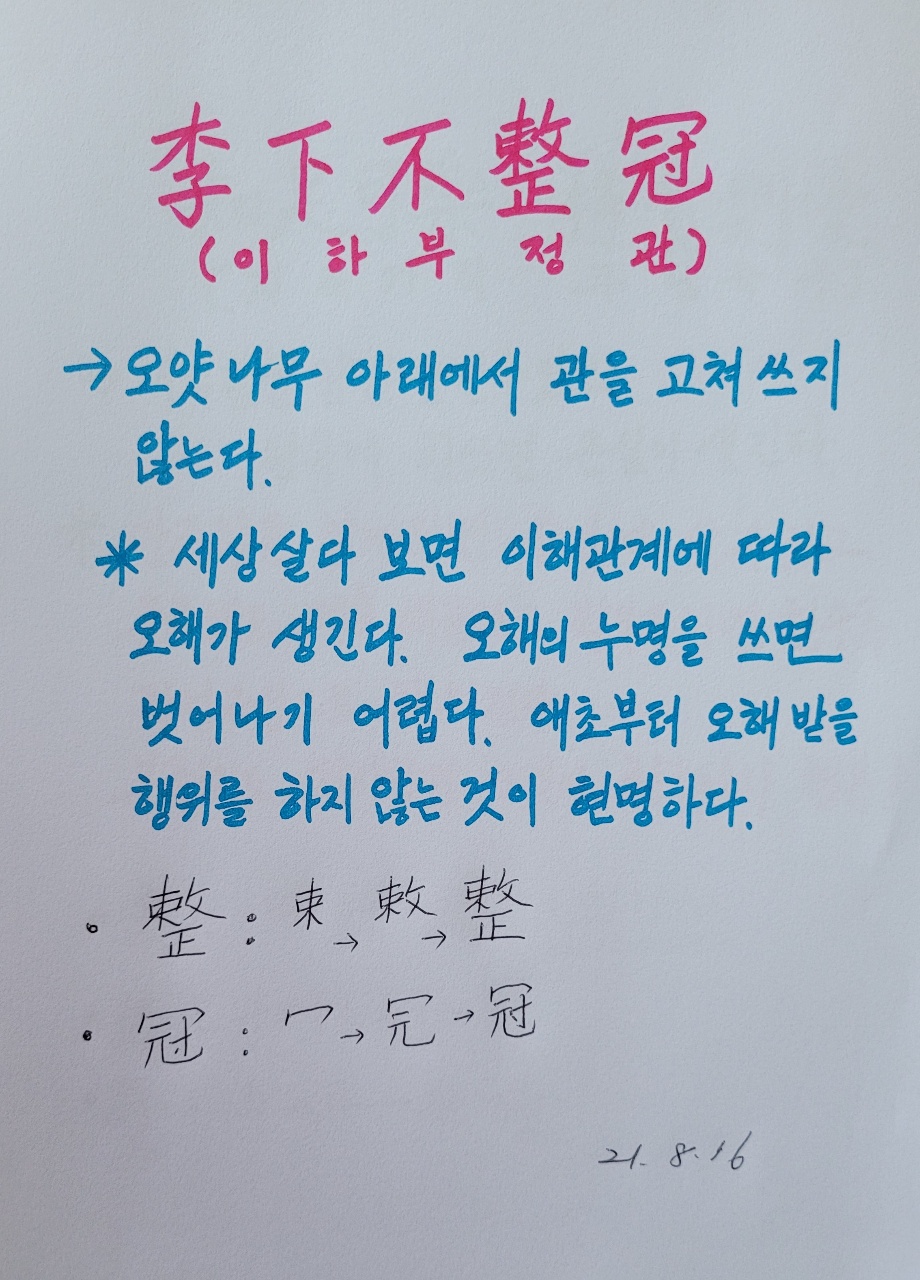 李下不整冠
(이하부정관)
→ 오얏나무 아래에서 관을 고쳐 쓰지
않는다.
* 세상살다 보면 이해관계에 따라
오해가 생긴다. 오해의 누명을 쓰면
벗어나기 어렵다. 애초부터 오해 받을
행위를 하지 않는 것이 현명하다.
• 整 : 束 → 敕 → 整
• 冠 : 冖 → 冗 → 冠
21. 8. 16